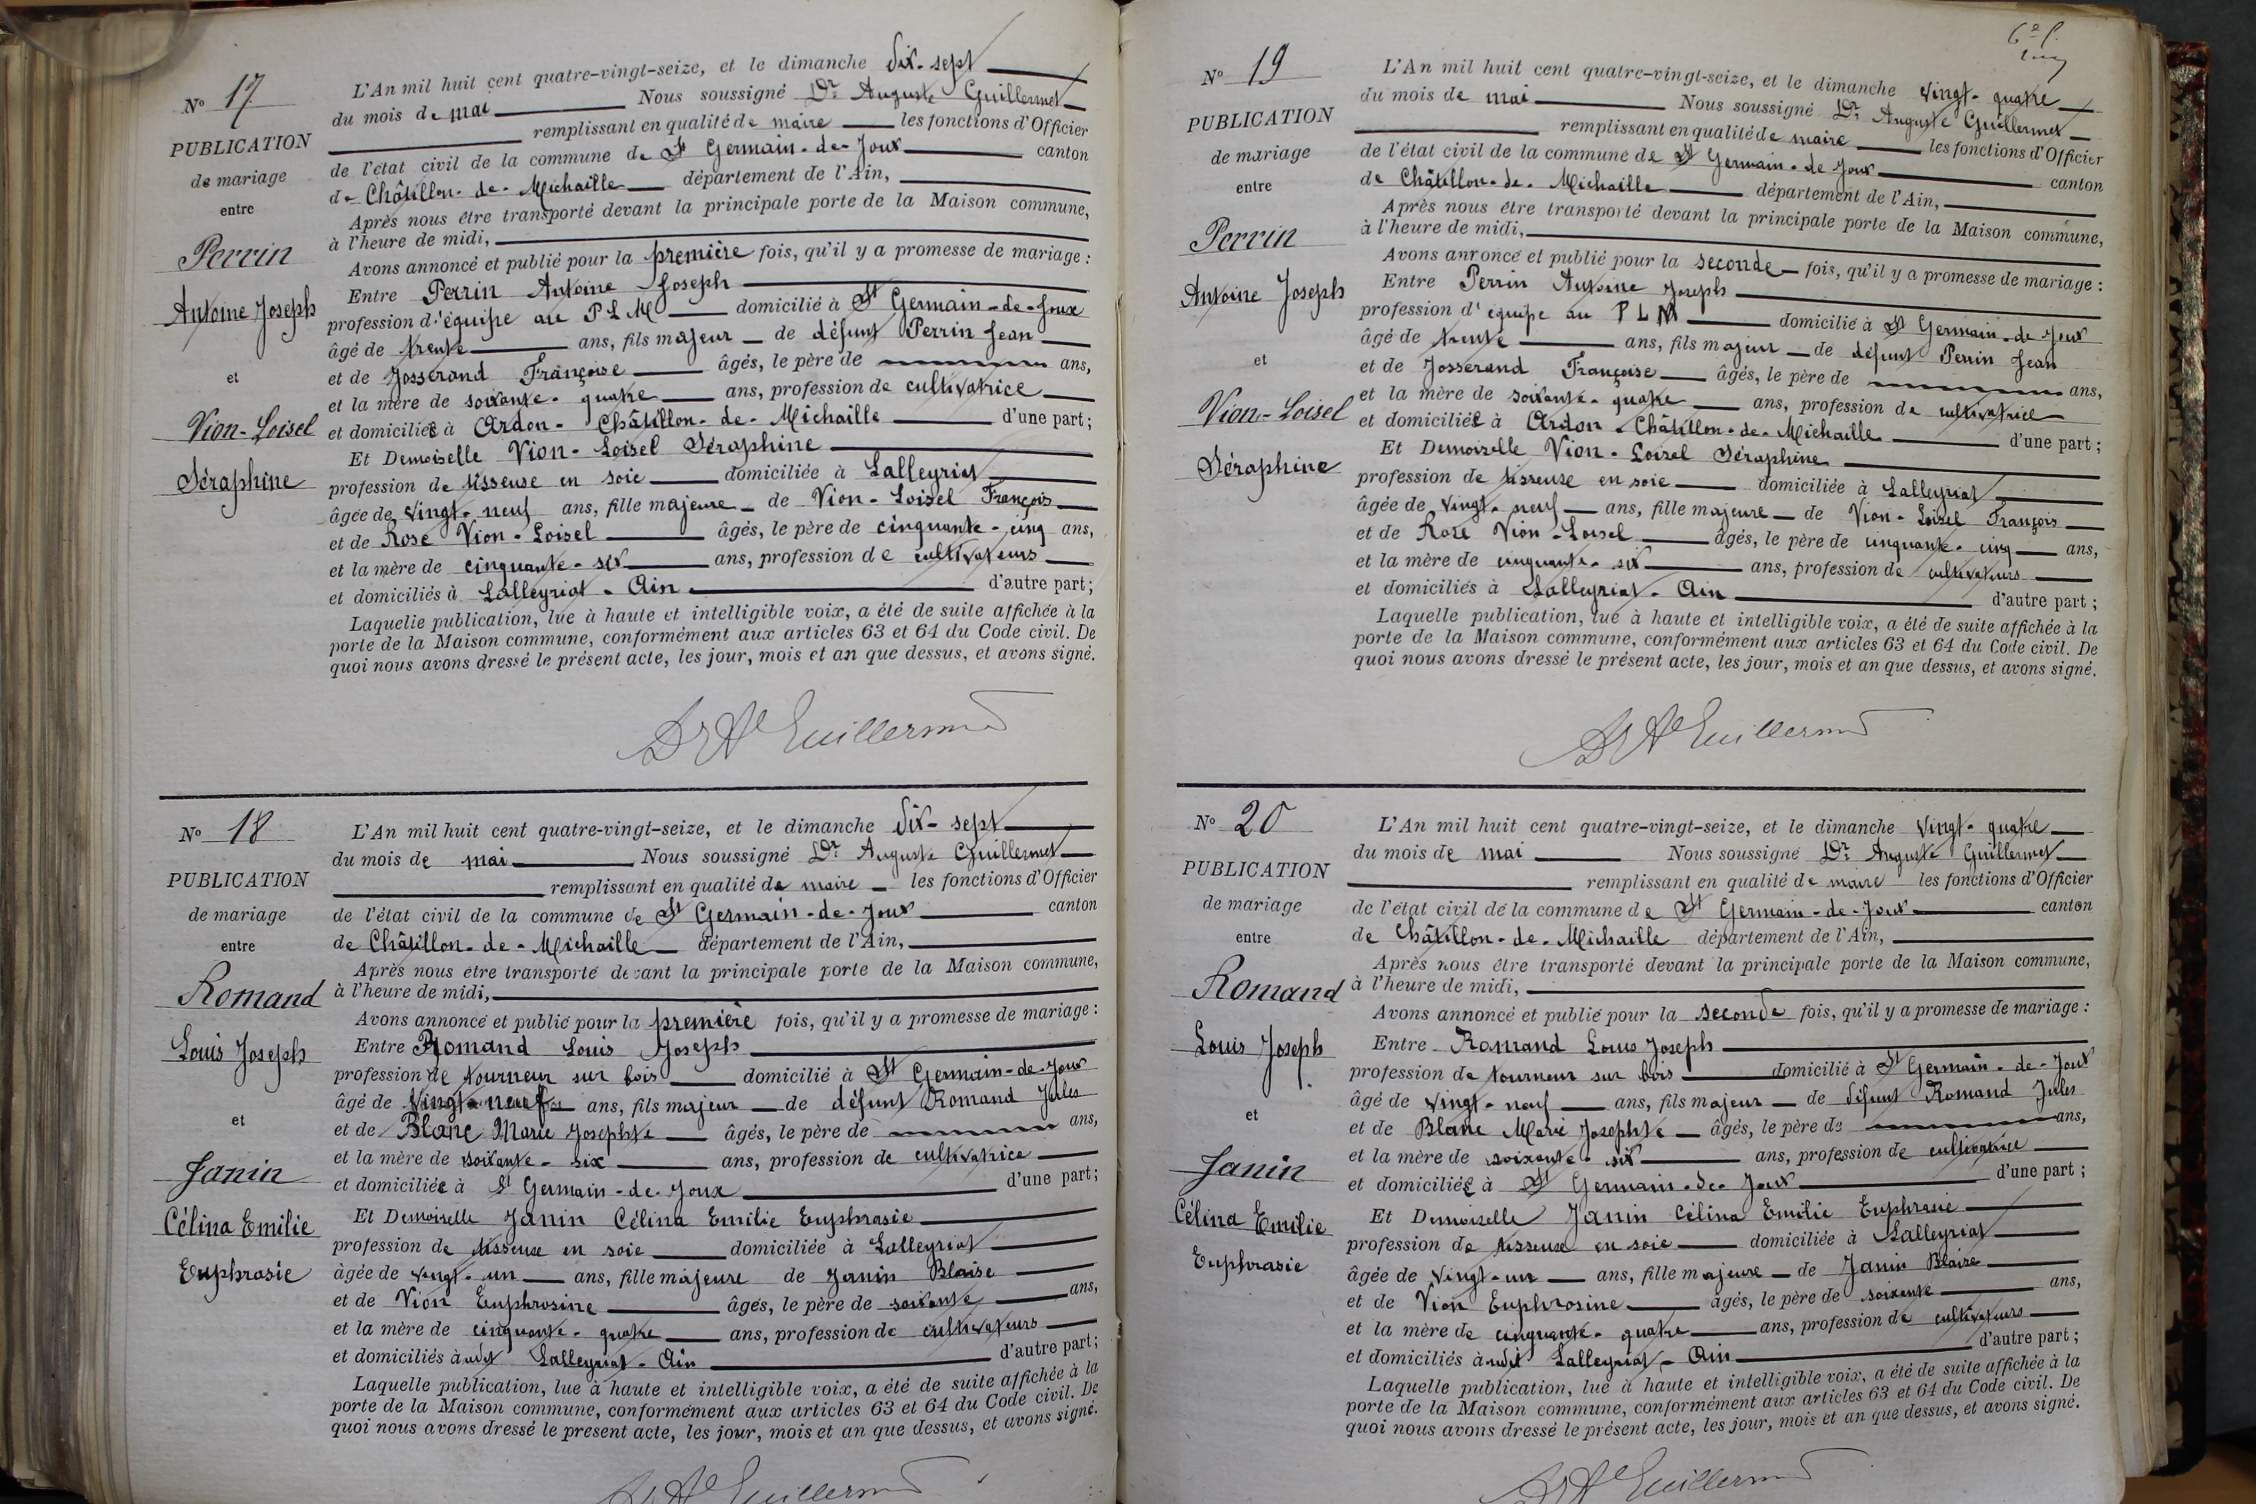 N° 17
PUBLICATION
de mariage
entre
Perrin
Antoine Joseph
et
Vion-Loisel
Séraphine
L'An mil huit cent quatre-vingt-seize, et le dimanche dix-sept
du mois de mai Nous soussigné Dr Auguste Guillermet
remplissant en qualité de maire les fonctions d'Officier
de l'état civil de la commune de St Germain-de-Joux canton
de Châtillon-de-Michaille département de l'Ain,
Après nous être transporté devant la principale porte de la Maison commune,
à l'heure de midi,
Avons annoncé et publié pour la première fois, qu'il y a promesse de mariage :
Entre Perrin Antoine Joseph
profession d'équipe au P L M domicilié à St Germain-de-Joux
âgé de trente ans, fils majeur de défunt Perrin Jean
et de Josserand Françoise âgés, le père de ans,
et la mère de soixante-quatre ans, profession de cultivatrice
et domiciliée à Ardon-Châtillon-de-Michaille d'une part;
Et Demoiselle Vion-Loisel Séraphine
profession de tisseuse en soie domiciliée à Lalleyriat
âgée de vingt-neuf ans, fille majeure de Vion-Loisel François
et de Rose Vion-Loisel âgés, le père de cinquante-cinq ans,
et la mère de cinquante-six ans, profession de cultivateurs
et domiciliés à Lalleyriat-Ain d'autre part;
Laquelle publication, lue à haute et intelligible voix, a été de suite affichée à la
porte de la Maison commune, conformément aux articles 63 et 64 du Code civil. De
quoi nous avons dressé le présent acte, les jour, mois et an que dessus, et avons signé.
Dr Ae Guillermet
N° 18
PUBLICATION
de mariage
entre
Romand
Louis Joseph
et
Janin
Célina Emilie
Euphrasie
L'An mil huit cent quatre-vingt-seize, et le dimanche dix-sept
du mois de mai Nous soussigné Dr Auguste Guillermet
remplissant en qualité de maire les fonctions d'Officier
de l'état civil de la commune de St Germain-de-Joux canton
de Châtillon-de-Michaille département de l'Ain,
Après nous être transporté devant la principale porte de la Maison commune,
à l'heure de midi,
Avons annoncé et publié pour la première fois, qu'il y a promesse de mariage :
Entre Romand Louis Joseph
profession de tourneur sur bois domicilié à St Germain-de-Joux
âgé de vingt-neuf ans, fils majeur de défunt Romand Jules
et de Blanc Marie Josephte âgés, le père de ans,
et la mère de soixante-six ans, profession de cultivatrice
et domiciliée à St Germain-de-Joux d'une part;
Et Demoiselle Janin Célina Emilie Euphrasie
profession de tisseuse en soie domiciliée à Lalleyriat
âgée de vingt-un ans, fille majeure de Janin Blaise
et de Vion Euphrosine âgés, le père de soixante ans,
et la mère de cinquante-quatre ans, profession de cultivateurs
et domiciliés à udit Lalleyriat-Ain d'autre part;
Laquelle publication, lue à haute et intelligible voix, a été de suite affichée à la
porte de la Maison commune, conformément aux articles 63 et 64 du Code civil. De
quoi nous avons dressé le présent acte, les jour, mois et an que dessus, et avons signé.
Dr Ae Guillermet
N° 19
PUBLICATION
de mariage
entre
Perrin
Antoine Joseph
et
Vion-Loisel
Séraphine
L'An mil huit cent quatre-vingt-seize, et le dimanche vingt-quatre
du mois de mai Nous soussigné Dr Auguste Guillermet
remplissant en qualité de maire les fonctions d'Officier
de l'état civil de la commune de St Germain-de-Joux canton
de Châtillon-de-Michaille département de l'Ain,
Après nous être transporté devant la principale porte de la Maison commune,
à l'heure de midi,
Avons annoncé et publié pour la seconde fois, qu'il y a promesse de mariage :
Entre Perrin Antoine Joseph
profession d'équipe au P L M domicilié à St Germain-de-Joux
âgé de trente ans, fils majeur de défunt Perrin Jean
et de Josserand Françoise âgés, le père de ans,
et la mère de soixante-quatre ans, profession de cultivatrice
et domiciliée à Ardon-Châtillon-de-Michaille d'une part;
Et Demoiselle Vion-Loisel Séraphine
profession de tisseuse en soie domiciliée à Lalleyriat
âgée de vingt-neuf ans, fille majeure de Vion-Loisel François
et de Rose Vion-Loisel âgés, le père de cinquante-cinq ans,
et la mère de cinquante-six ans, profession de cultivateurs
et domiciliés à Lalleyriat-Ain d'autre part;
Laquelle publication, lue à haute et intelligible voix, a été de suite affichée à la
porte de la Maison commune, conformément aux articles 63 et 64 du Code civil. De
quoi nous avons dressé le présent acte, les jour, mois et an que dessus, et avons signé.
Dr Ae Guillermet
N° 20
PUBLICATION
de mariage
entre
Romand
Louis Joseph
et
Janin
Célina Emilie
Euphrasie
L'An mil huit cent quatre-vingt-seize, et le dimanche vingt-quatre
du mois de mai Nous soussigné Dr Auguste Guillermet
remplissant en qualité de maire les fonctions d'Officier
de l'état civil de la commune de St Germain-de-Joux canton
de Châtillon-de-Michaille département de l'Ain,
Après nous être transporté devant la principale porte de la Maison commune,
à l'heure de midi,
Avons annoncé et publié pour la seconde fois, qu'il y a promesse de mariage :
Entre Romand Louis Joseph
profession de tourneur sur bois domicilié à St Germain-de-Joux
âgé de vingt-neuf ans, fils majeur de défunt Romand Jules
et de Blanc Marie Josephte âgés, le père de ans,
et la mère de soixante-six ans, profession de cultivatrice
et domiciliée à St Germain-de-Joux d'une part;
Et Demoiselle Janin Célina Emilie Euphrasie
profession de tisseuse en soie domiciliée à Lalleyriat
âgée de vingt-un ans, fille majeure de Janin Blaise
et de Vion Euphrosine âgés, le père de soixante ans,
et la mère de cinquante-quatre ans, profession de cultivateurs
et domiciliés à udit Lalleyriat-Ain d'autre part;
Laquelle publication, lue à haute et intelligible voix, a été de suite affichée à la
porte de la Maison commune, conformément aux articles 63 et 64 du Code civil. De
quoi nous avons dressé le présent acte, les jour, mois et an que dessus, et avons signé.
Dr Ae Guillermet